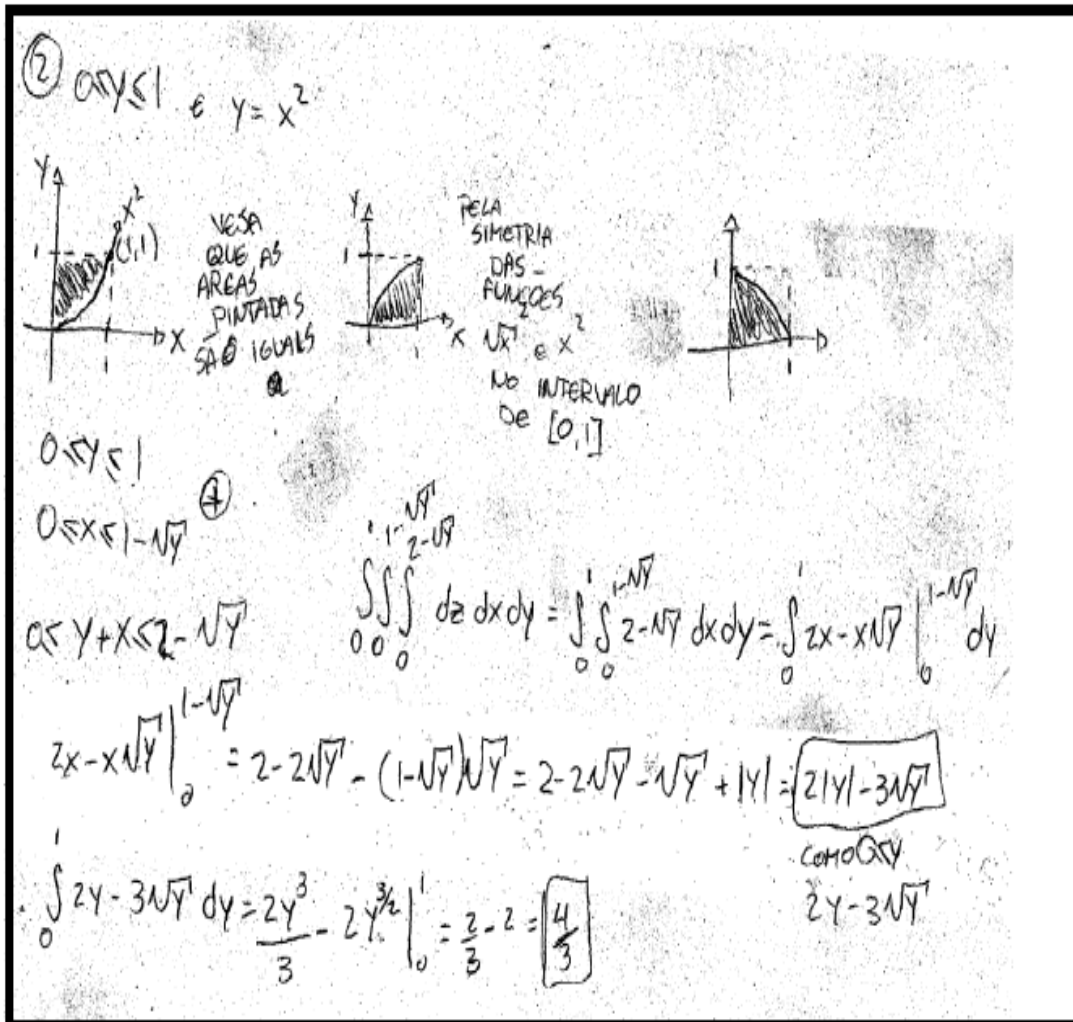 ② 0≤y≤1 e y = x²
Y
x²
1
(1,1)
X
1
VEJA
QUE AS
ÁREAS
PINTADAS
SÃO IGUAIS
Y
1
X
1
PELA
SIMETRIA
DAS
FUNÇÕES
√x e x²
NO INTERVALO
DE [0,1]
1
1
0≤y≤1
0≤x≤1-√y
0≤ y+x≤2-√y
∫₀¹ ∫₀^(1-√y) ∫₀^(2-√y) dz dx dy = ∫₀¹ ∫₀^(1-√y) 2-√y dx dy = ∫₀¹ 2x-x√y |₀^(1-√y) dy
2x-x√y |₀^(1-√y) = 2-2√y - (1-√y)√y = 2-2√y-√y + |y| = 2|y|-3√y
COMO 0≤y
2y-3√y
∫₀¹ 2y-3√y dy = 2y³/3 - 2y^(3/2) |₀¹ = 2/3 - 2 = 4/3